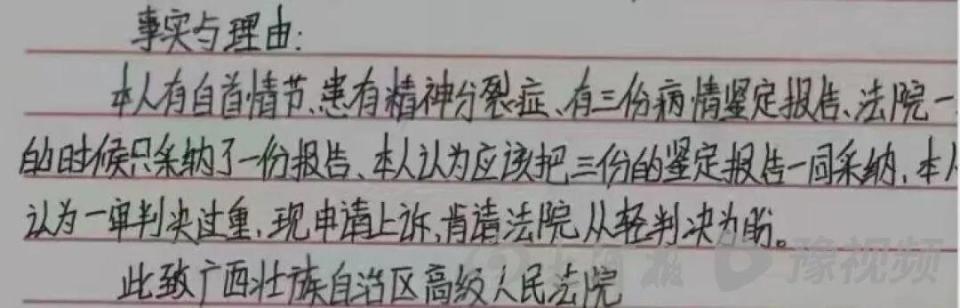 事实与理由:
本人有自首情节、患有精神分裂症、有三份病情坚定报告、法院一
的时候只采纳了一份报告、本人认为应该把三份的坚定报告一同采纳、本人
认为一审判决过重、现申请上诉、肯请法院从轻判决为盼。
此致广西壮族自治区高级人民法院
豫视频